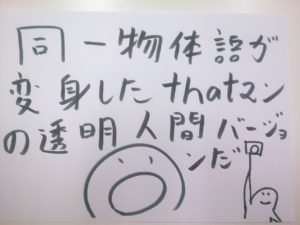 同一物体語が
変身したthatマン
の透明人間バージョ
ンだ